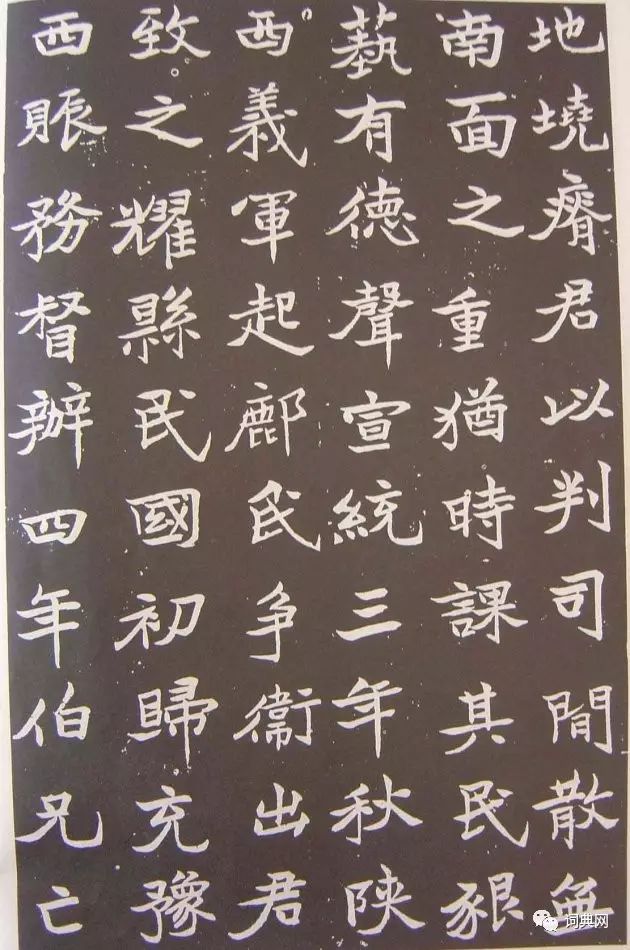 地墝瘠君以判司閒散無
南面之重猶時課其民貇
藝有德聲宣統三年秋陝
西義軍起鄜民爭衛出君
致之耀縣民國初歸充豫
西賑務督辦四年伯兄亡
词典网